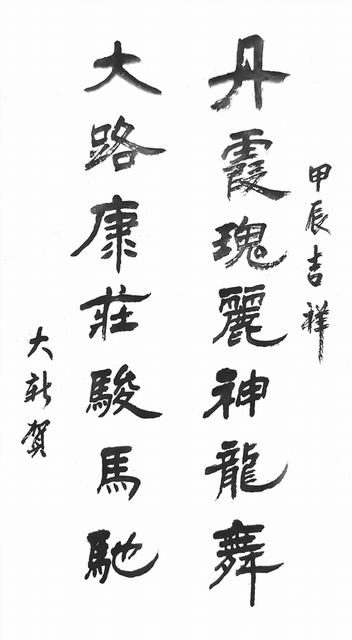 甲辰吉祥
丹霞瑰麗神龍舞
大路康莊駿馬馳
大新賀